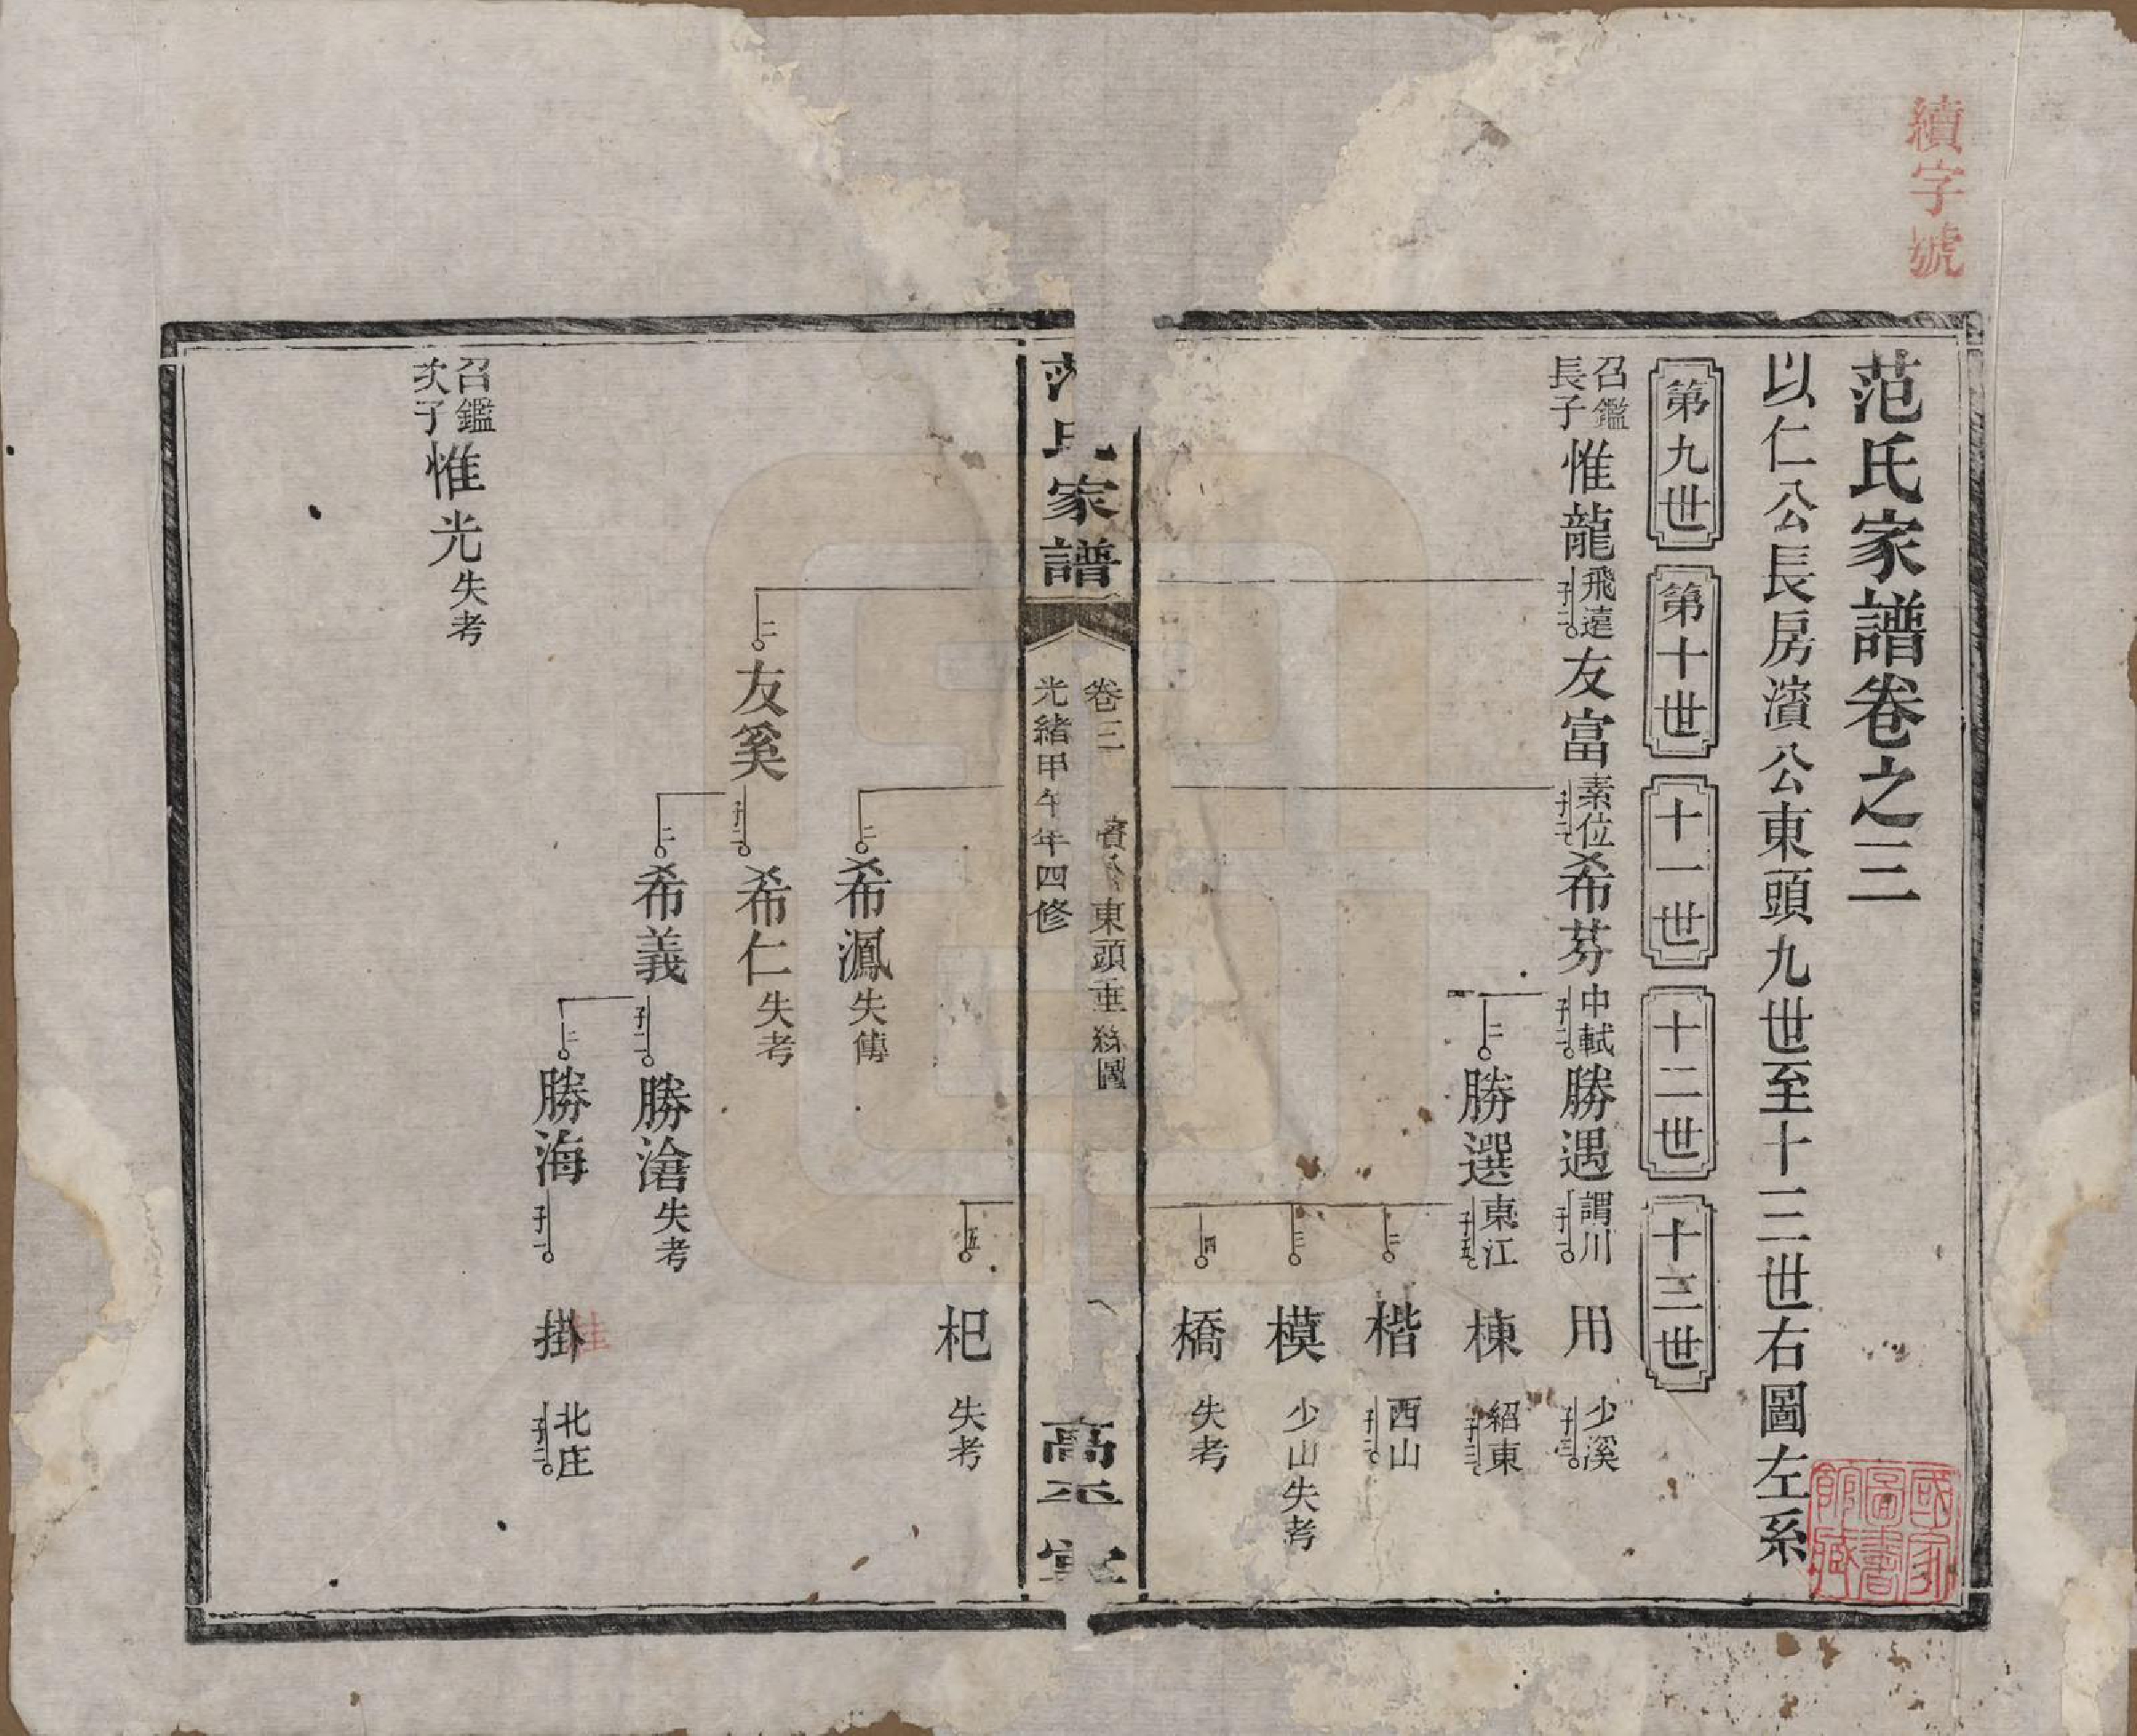 續字號
范氏家譜卷之三
以仁公長房濱公東頭九世至十三世右圖左系
第九世
第十世
十一世
十二世
十三世
召鑑長子
惟龍
飛遠
子二
友富
素位
子二
希芬
中軾
子二
勝遇
謂川
子一
用
少溪
子三
二
勝選
東江
子五
棟
紹東
子三
二
楷
西山
子二
三
模
少山失考
四
橋
失考
氏家譜
卷三
東頭垂絲圖
光緒甲午年四修
高平
五
杞
失考
二
希鳳
失傳
二
友奚
子二
希仁
失考
二
希義
子二
勝滄
失考
二
勝海
子一
掛
桂
北庄
子二
召鑑次子
惟光
失考
國家圖書館藏